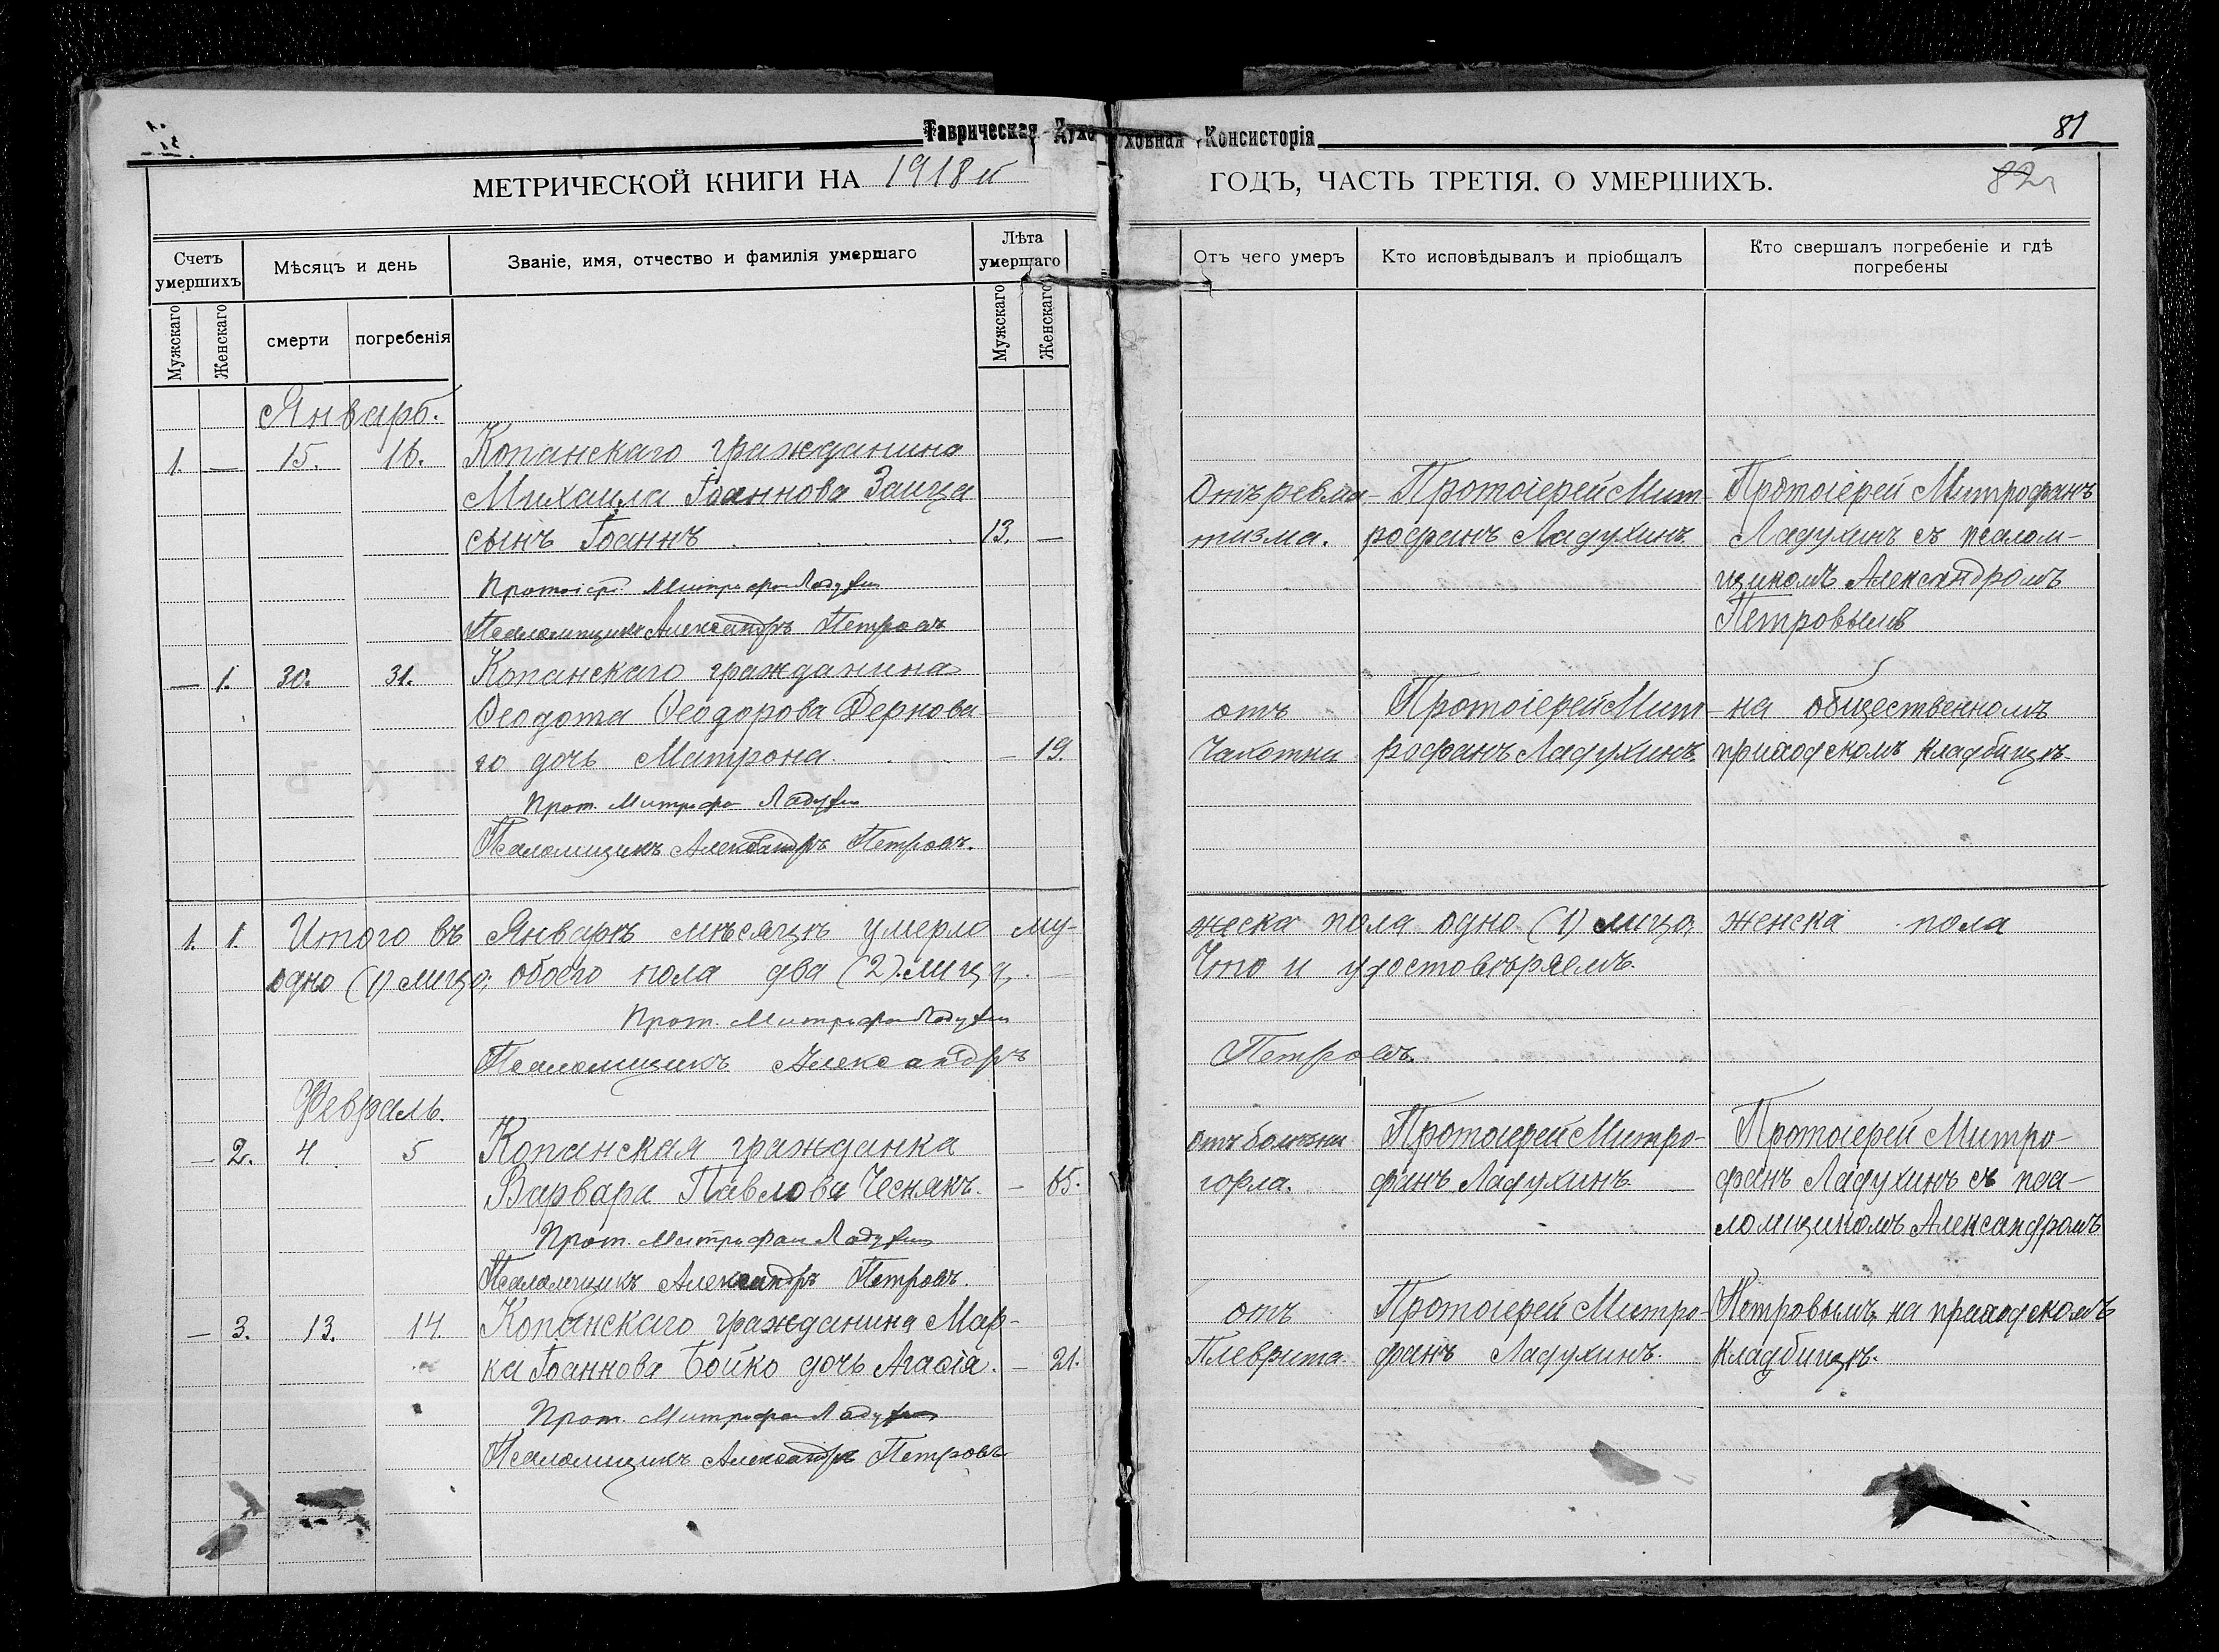 Таврическая Духовная Консисторія
81
82
МЕТРИЧЕСКОЙ КНИГИ НА 1918й ГОДЪ, ЧАСТЬ ТРЕТІЯ. О УМЕРШИХЪ.
Счетъ умершихъ
Мѣсяцъ и день
Званіе, имя, отчество и фамилія умершаго
Лѣта умершаго
Отъ чего умеръ
Кто исповѣдывалъ и пріобщалъ
Кто свершалъ погребеніе и гдѣ погребены
Мужскаго
Женскаго
смерти
погребенія
Мужскаго
Женскаго
Январь.
1. — 15. 16. Копанскаго гражданина
Михаила Іоаннова Заица
сынъ Іоаннъ 13. —
Митрофан Ладухин
Псаломщикъ Александръ Петровъ
Отъ ревма-
тизма.
Протоіерей Мит-
рофанъ Ладухинъ
Протоіерей Митрофанъ
Ладухинъ съ псалом-
щикомъ Александромъ
Петровымъ
— 1. 30. 31. Копанскаго гражданина
Ѳеодота Ѳеодорова Дернова
го дочь Матрона. — 19.
Прот. Митрофан Ладухин
Псаломщикъ Александръ Петровъ.
отъ
Чахотки
Протоіерей Мит-
рофанъ Ладухинъ.
на общественномъ
приходскомъ кладбищѣ.
1. 1. Итого въ Январѣ мѣсяцѣ умерло му-
жеска пола одно (1) лицо, женска пола
одно (1) лицо; обоего пола два (2) лица,
Что и удостовѣряемъ.
Прот. Митрофан Ладухин
Псаломщикъ Александръ Петровъ.
Февраль.
— 2. 4. 5 Копанская гражданка
Варвара Павлова Чеснякъ. — 65.
Прот. Митрофан Ладухин
Псаломщикъ Александръ Петровъ.
отъ болѣзни
горла.
Протоіерей Митро-
фанъ Ладухинъ.
Протоіерей Митро-
фанъ Ладухинъ съ пса-
ломщикомъ Александромъ
— 3. 13. 14. Копанскаго гражданина Мар-
ка Іоаннова Бойко дочь Агаѳія. — 21.
Прот. Митрофан Ладухин
Псаломщикъ Александръ Петровъ
отъ
Плеврита.
Протоіерей Митро-
фанъ Ладухинъ.
Петровымъ, на приходскомъ
кладбищѣ.